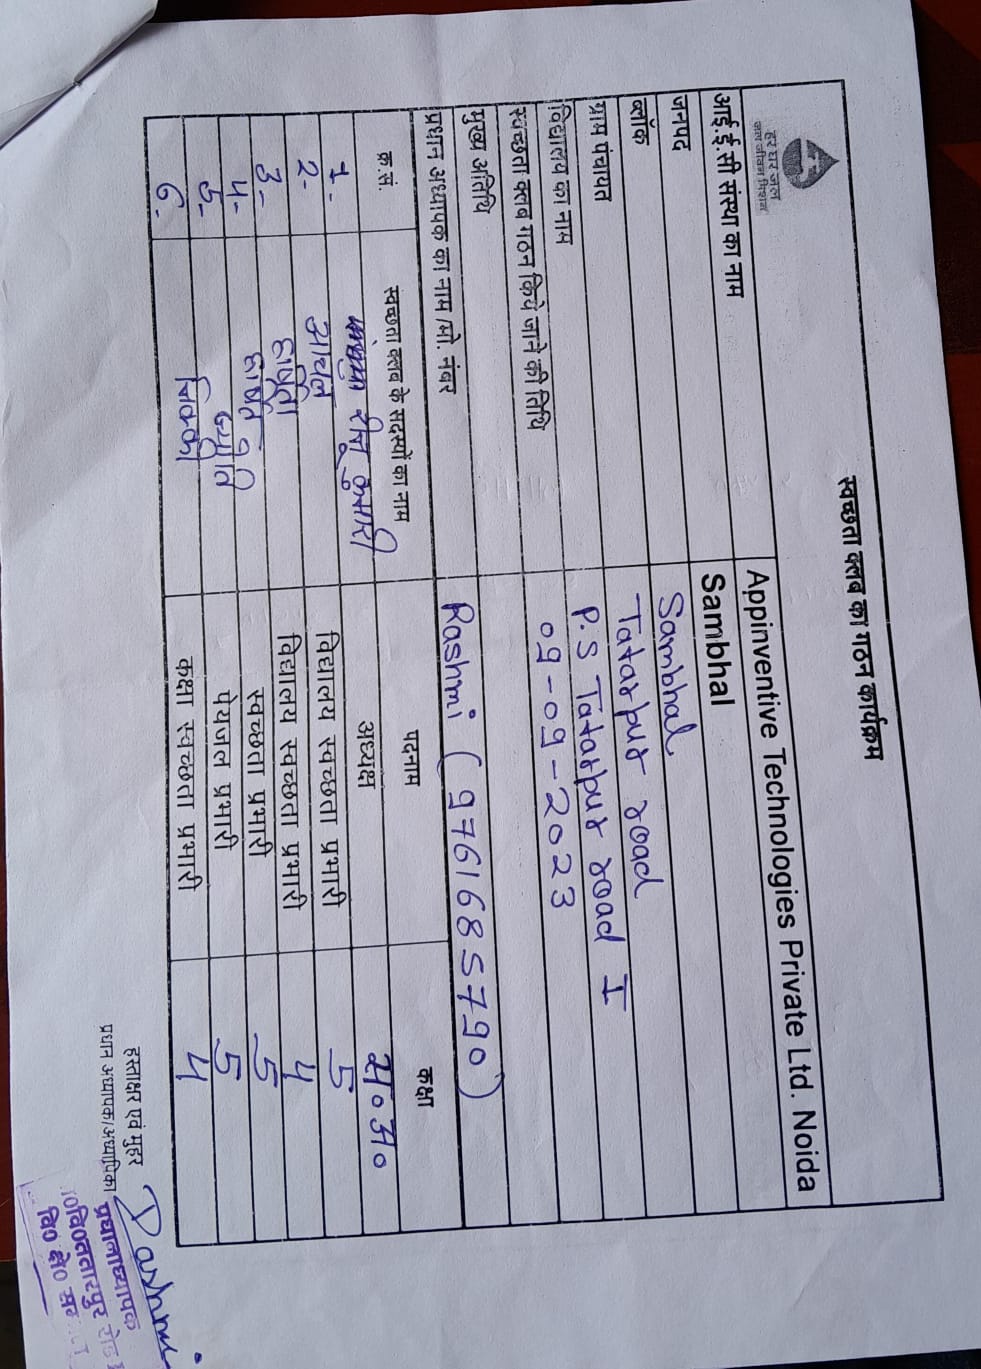 स्वच्छता क्लब का गठन कार्यक्रम
हर घर जल
जल जीवन मिशन
आई.ई.सी संस्था का नाम Appinventive Technologies Private Ltd. Noida
जनपद Sambhal
ब्लॉक Sambhal
ग्राम पंचायत Tatarpur road
विद्यालय का नाम P.S Tatarpur road I
स्वच्छता क्लब गठन किये जाने की तिथि 09-09-2023
मुख्य अतिथि
प्रधान अध्यापक का नाम/मो. नंबर Rashmi (9761685790)
क्र.सं. स्वच्छता क्लब के सदस्यों का नाम पदनाम कक्षा
1- रीनू कुमारी अध्यक्ष स०अ०
2- विद्यालय स्वच्छता प्रभारी 5
3- विद्यालय स्वच्छता प्रभारी 4
4- स्वच्छता प्रभारी 5
5- पेयजल प्रभारी 5
6. कक्षा स्वच्छता प्रभारी 4
हस्ताक्षर एवं मुहर
प्रधान अध्यापक/अध्यापिका
Rashmi
प्रधानाध्यापक
वि० क्षे०